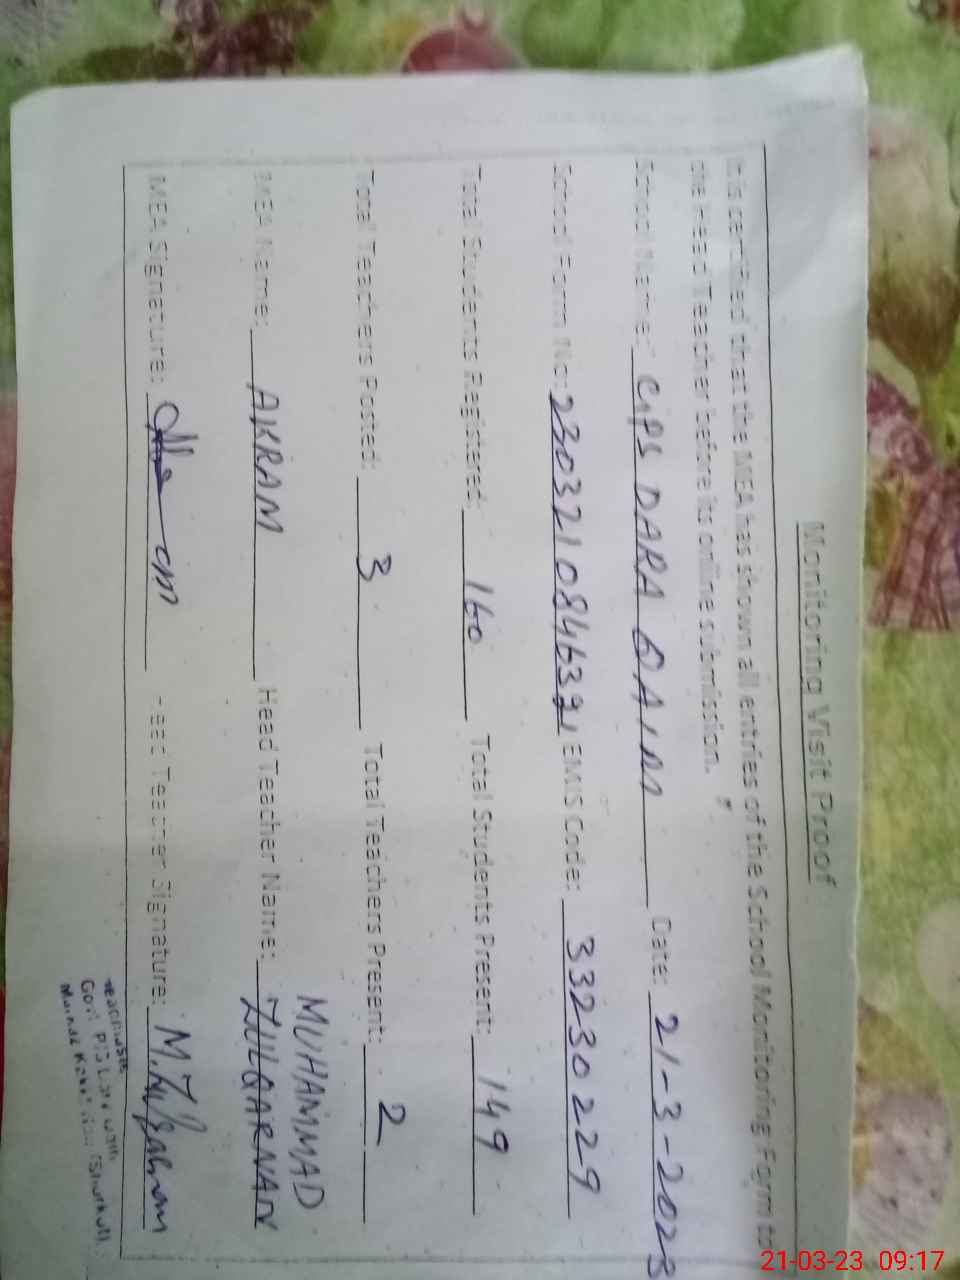 Monitoring Visit Proof
It is certified that the MEA has shown all entries of the School Monitoring Form to
the Head Teacher before its online submission.
School Name: GPS DARA QAIM Date: 21-3-2023
School Form No: EMIS Code: 33230229
Total Students Registered: 160 Total Students Present: 149
Total Teachers Posted: 3 Total Teachers Present: 2
MEA Name: AKRAM Head Teacher Name: MUHAMMAD
ZULQARNAN
MEA Signature: Head Teacher Signature: M.
Govt P/S
21-03-23 09:17